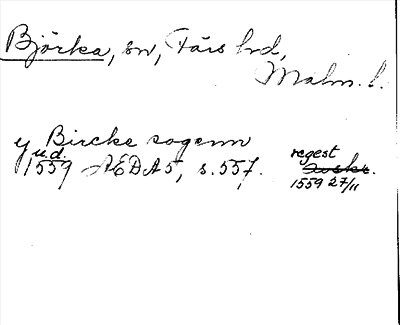 Björka, sn, Färs hrd,
Malm. l.
y Bircke sogenn
u.d.
1559 AEDA5, s. 557.
regest
Avskr.
1559 27/11